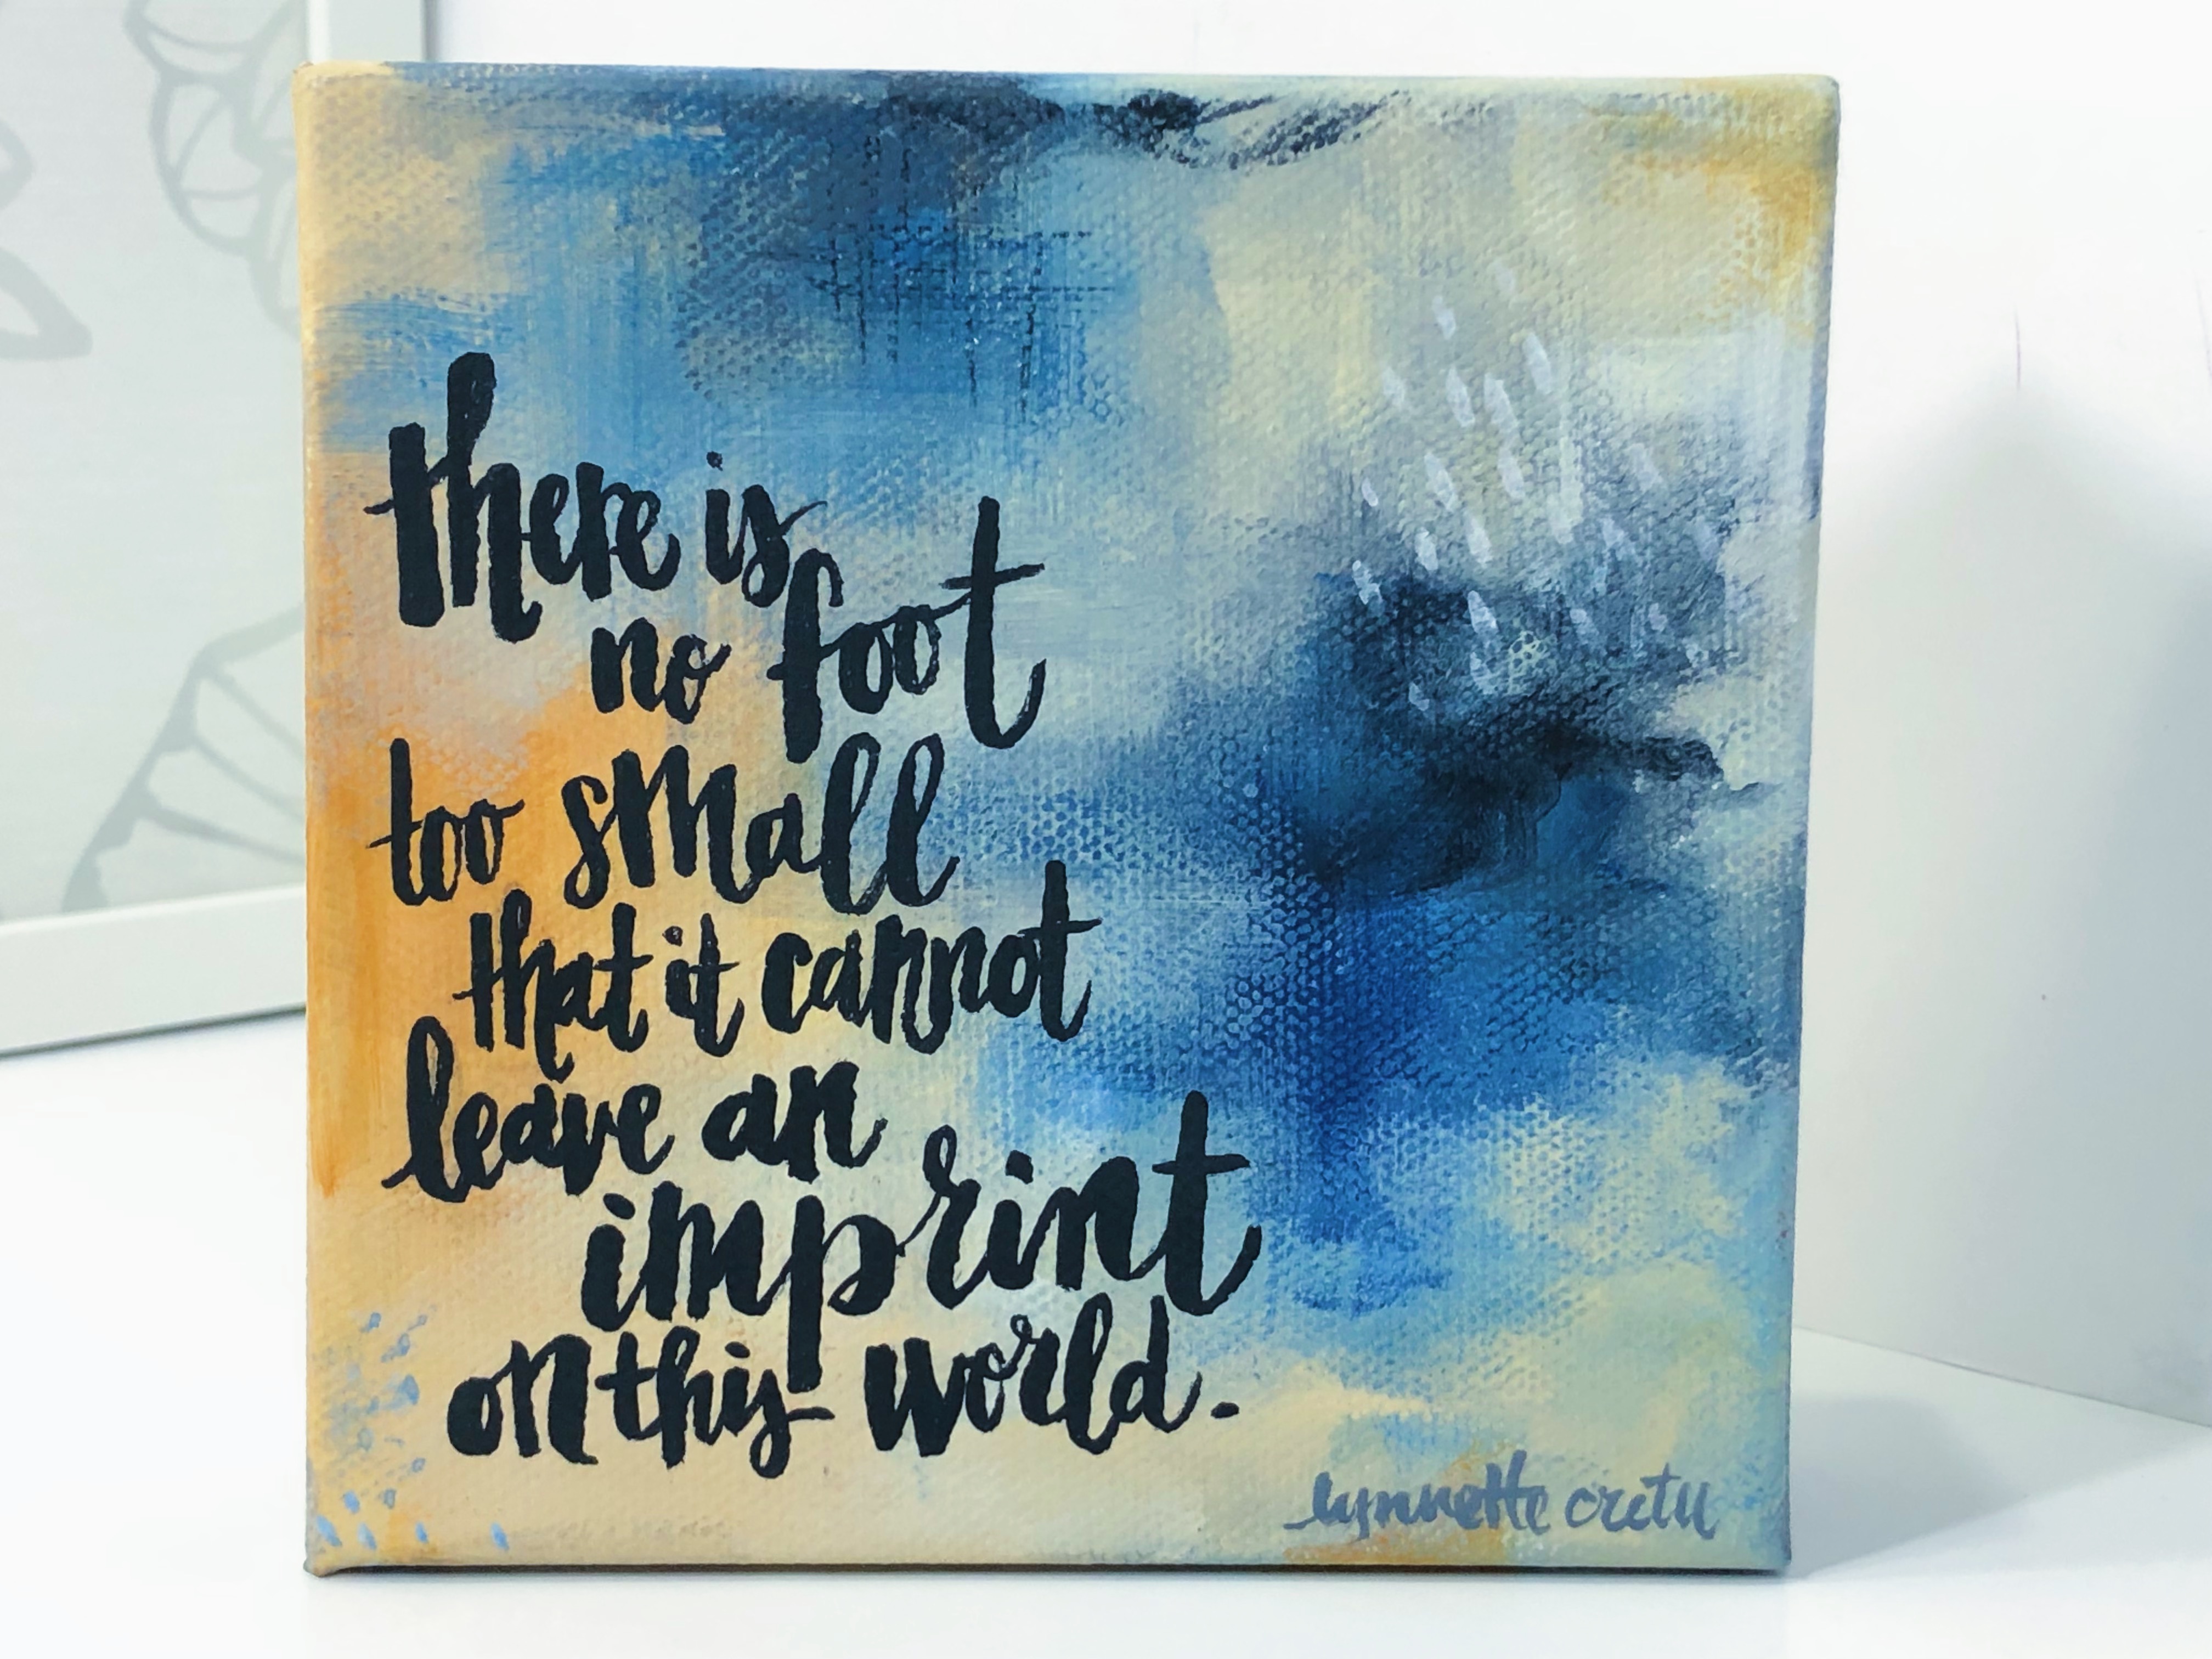 there is
no foot
too small
that it cannot
leave an
imprint
on this world.
lynnette cretu